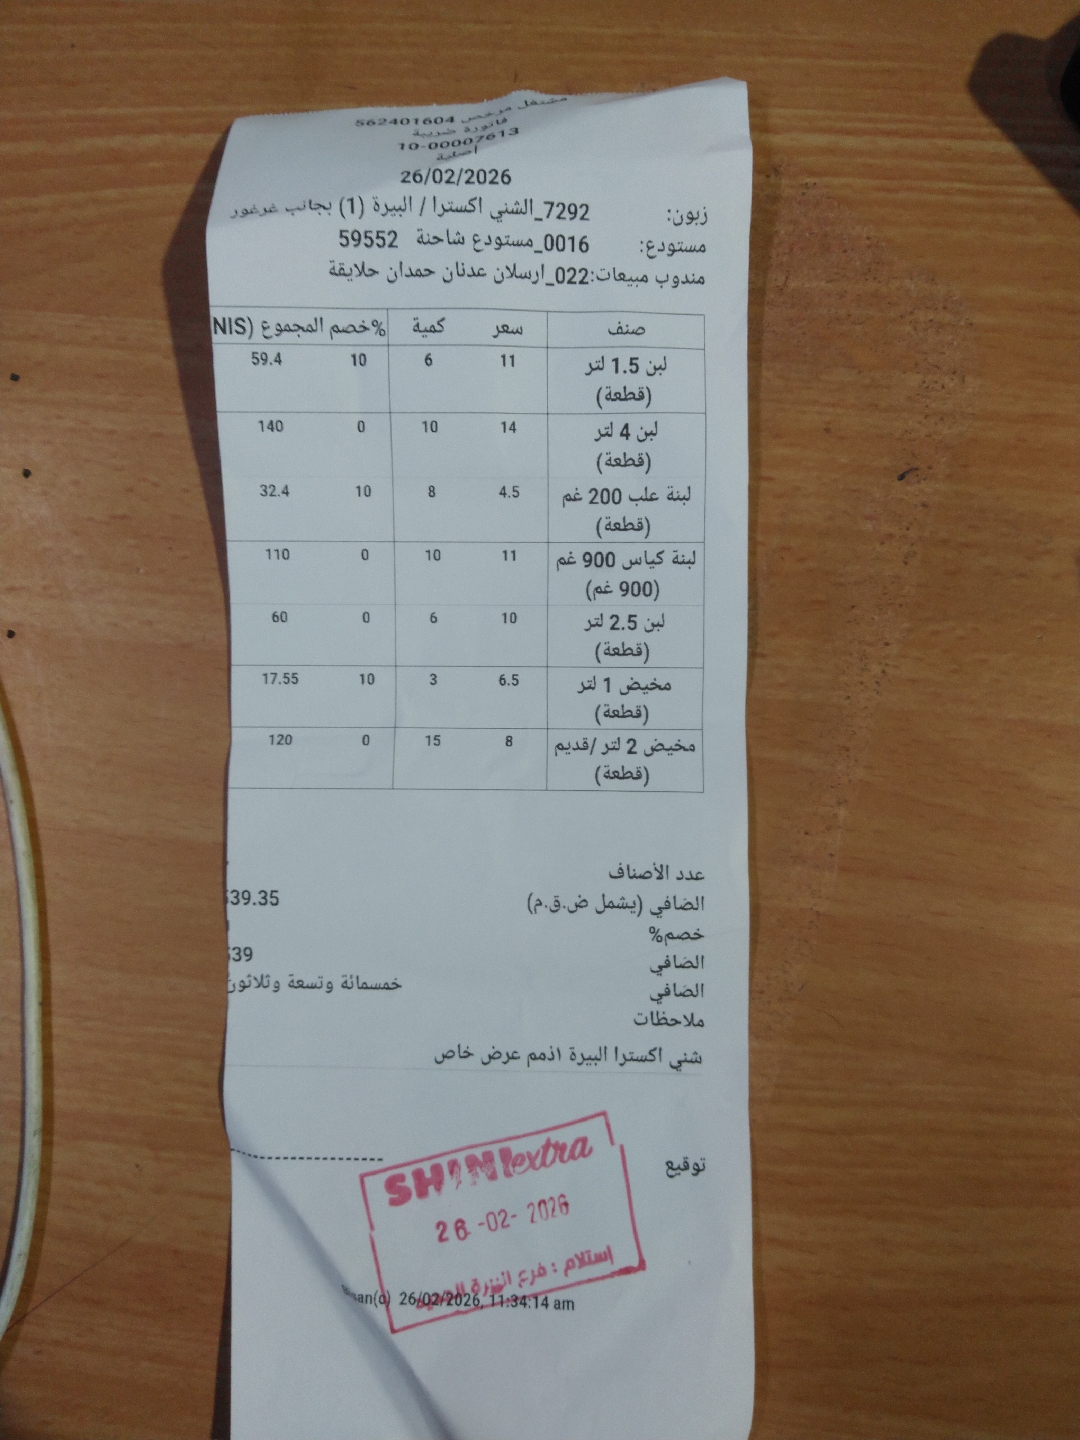 مشتغل مرخص 562401604
فاتورة ضريبة
10-00007613
أصلية
26/02/2026
زبون: 7292_الشني اكسترا / البيرة (1) بجانب غرغور
مستودع: 0016_مستودع شاحنة 59552
مندوب مبيعات:022_ارسلان عدنان حمدان حلايقة
صنف سعر كمية %خصم المجموع (NIS
لبن 1.5 لتر 11 6 10 59.4
(قطعة)
لبن 4 لتر 14 10 0 140
(قطعة)
لبنة علب 200 غم 4.5 8 10 32.4
(قطعة)
لبنة كياس 900 غم 11 10 0 110
(900 غم)
لبن 2.5 لتر 10 6 0 60
(قطعة)
مخيض 1 لتر 6.5 3 10 17.55
(قطعة)
مخيض 2 لتر /قديم 8 15 0 120
(قطعة)
عدد الأصناف
الصافي (يشمل ض.ق.م) 39.35
خصم%
الصافي 39
الصافي خمسمائة وتسعة وثلاثون
ملاحظات
شني اكسترا البيرة اذمم عرض خاص
توقيع
SHINI extra
26-02-2026
إستلام : فرع البيرة
san(c) 26/02/2026, 11:34:14 am